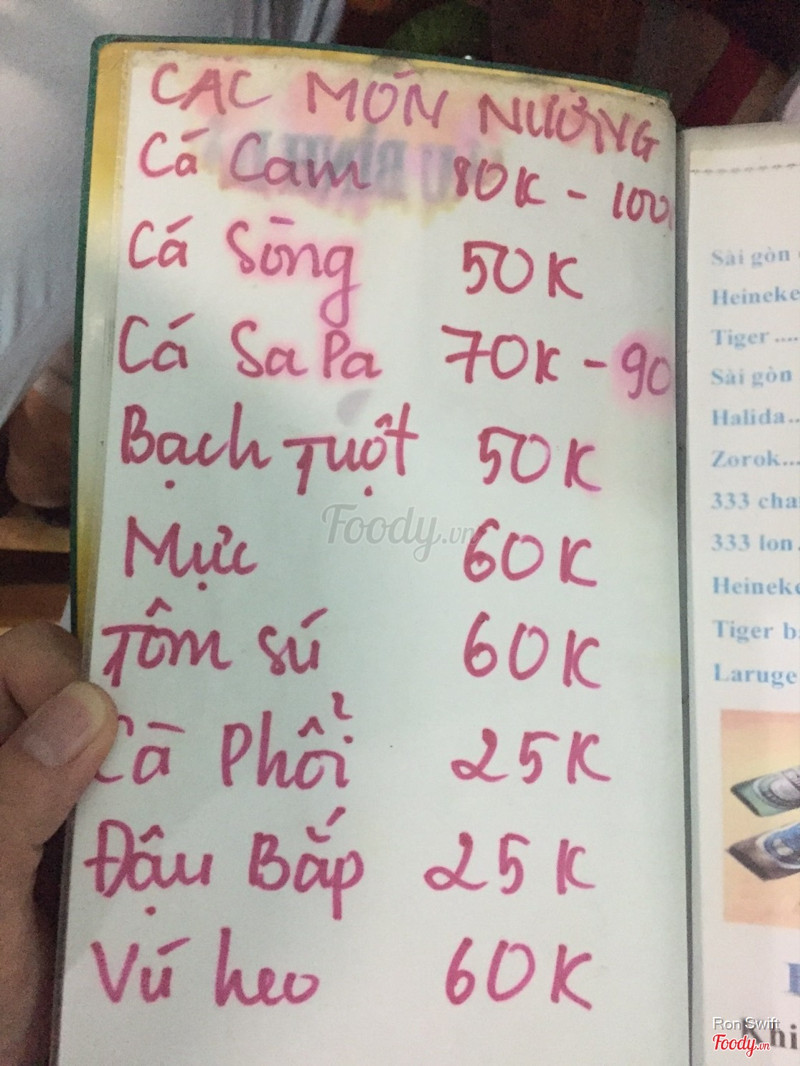 CÁC MÓN NƯỚNG
Cá Cam 80K - 100
Cá Sòng 50K
Cá Sa Pa 70K - 90
Bạch Tuột 50K
Mực 60K
Tôm Sú 60K
Cà Phổi 25K
Đậu Bắp 25K
Vú heo 60K
Foody.vn
Sài gòn
Heineke
Tiger ....
Sài gòn
Halida..
Zorok...
333 cha
333 lon
Heineke
Tiger b
Laruge
Khi
Ron Swift
Foody.vn